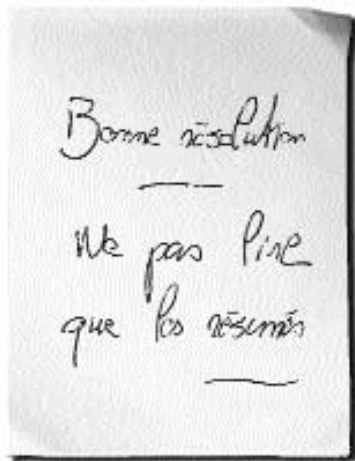 Bonne résolution
Ne pas lire
que les résumés